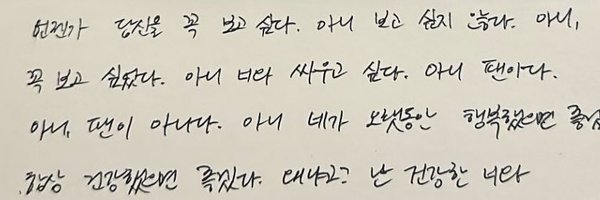 언젠가 당신을 꼭 보고 싶다. 아니 보고 싶지 않다. 아니,
꼭 보고 싶었다. 아니 너와 싸우고 싶다. 아니 팬이다.
아니, 팬이 아니다. 아니 네가 오랫동안 행복했으면 좋겠
항상 건강했으면 좋겠다. 왜냐고? 난 건강한 너와